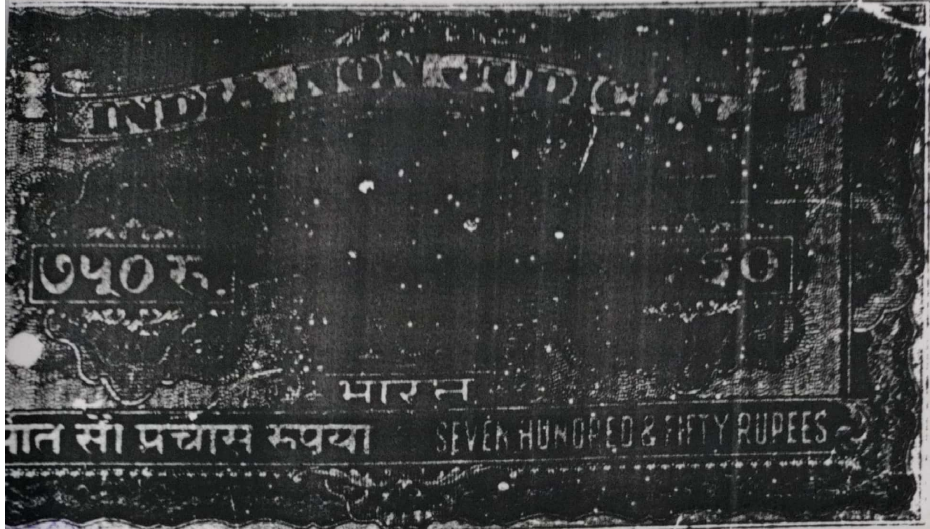 INDIA NON JUDICIAL
७५० रु.
50
भारत
सात सौ पचास रुपया SEVEN HUNDRED & FIFTY RUPEES